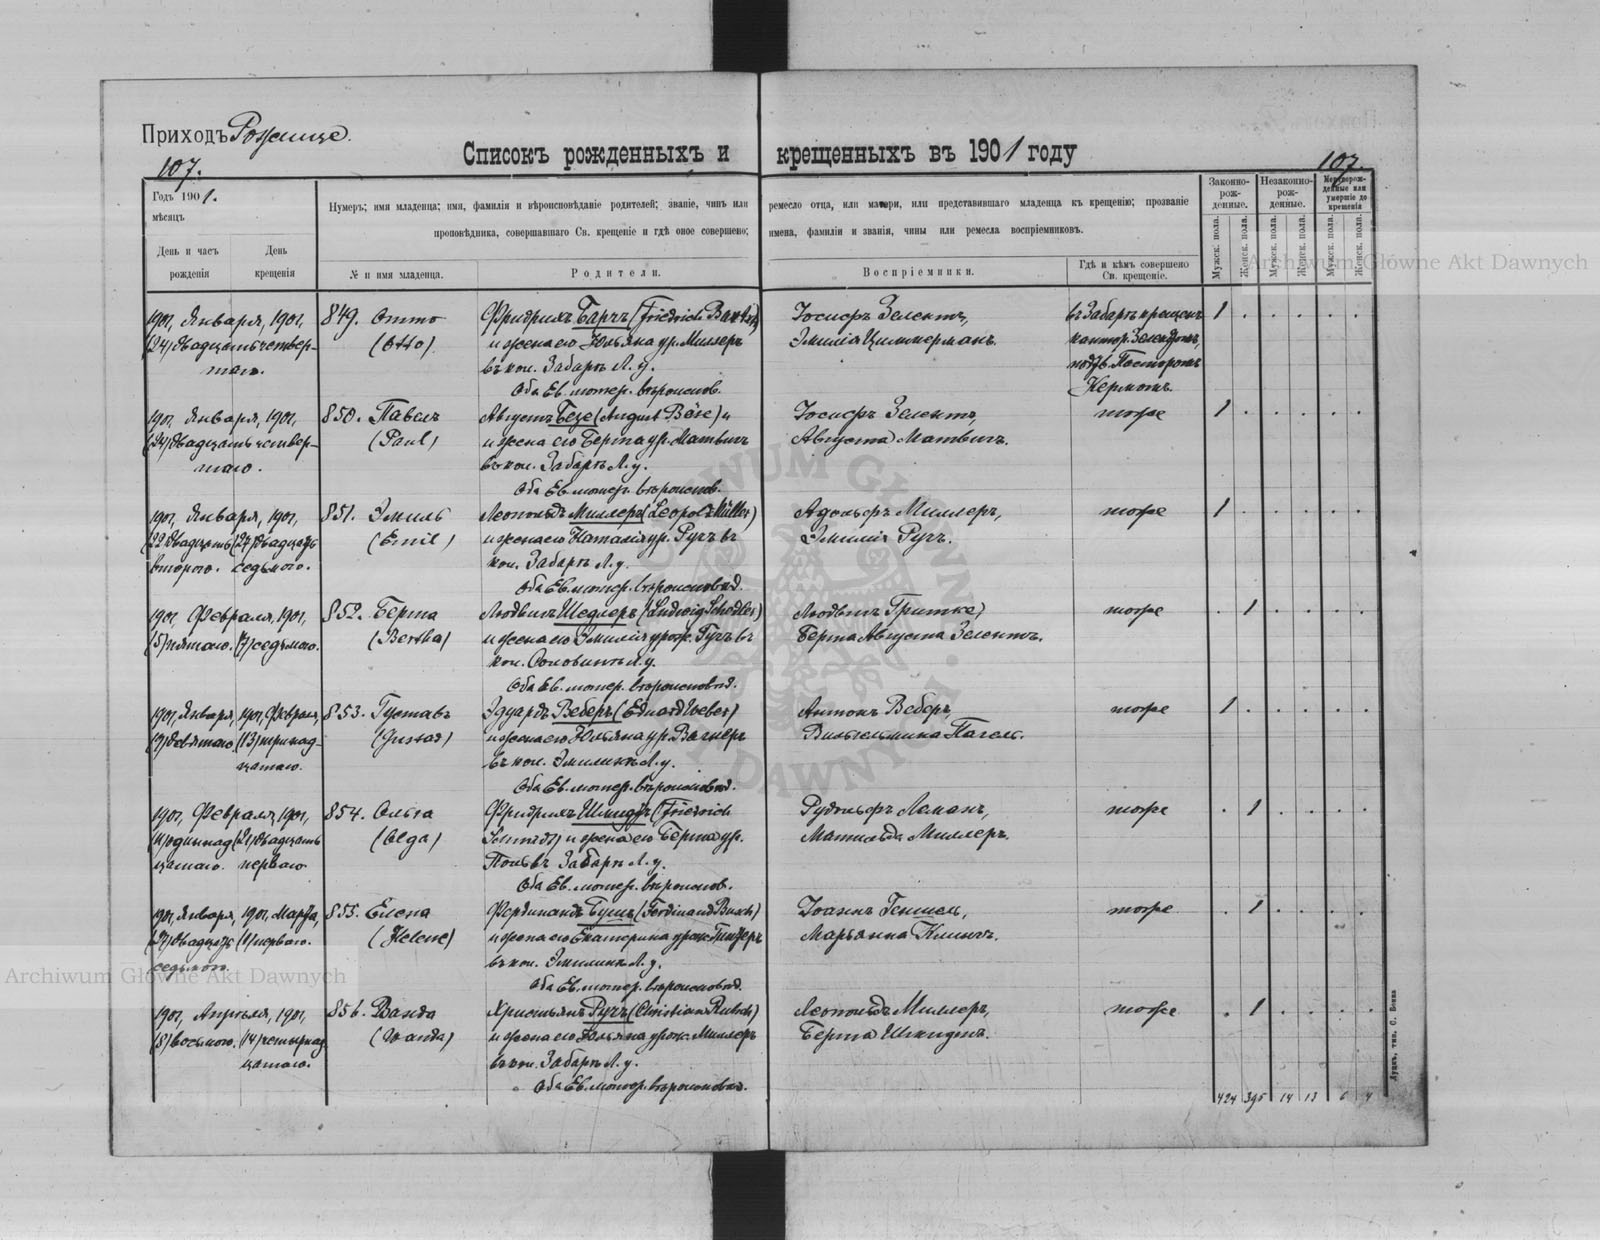 Приходъ Рожище.
107.
Списокъ рожденныхъ и крещенныхъ въ 1901 году
107.
Годъ 1901.
мѣсяцъ
День и часъ рожденія
День крещенія
Нумеръ; имя младенца; имя, фамилія и вѣроисповѣданіе родителей; званіе, чинъ или ремесло отца, или матери, или представившаго младенца къ крещенію; прозваніе
проповѣдника, совершавшаго Св. крещеніе и гдѣ оное совершено; имена, фамиліи и званія, чины или ремесла воспріемниковъ.
№ и имя младенца.
Родители.
Воспріемники.
Гдѣ и кѣмъ совершено Св. крещеніе.
Законно-рож-денные.
Незаконно-рож-денные.
Мертворож-денные или умершіе до крещенія
Мужск. пола.
Женск. пола.
Мужск. пола.
Женск. пола.
Мужск. пола.
Женск. пола.
1901, Января, 1901, 849. Отто Фридрихъ Барчъ (Friedrich Bartsch) Іосифъ Зелентъ, въ Забарѣ крещенъ 1 . . . . .
(24) двадцать четвер- (Otto) и жена его Юльяна ур. Миллеръ Эмилія Циммерманъ. кантор. Зелентомъ,
таго. въ кол. Забарѣ Л. у. подтв. Пасторомъ
Оба Ев. лютер. вѣроиспов. Кермомъ.
1901, Января, 1901, 850. Павелъ Августъ Безе (August Böse) и Іосифъ Зелентъ, тоже 1 . . . . .
(24) двадцать четвер- (Paul) и жена его Берта ур. Матвигъ Августа Матвигъ.
таго. въ кол. Забарѣ Л. у.
Оба Ев. лютер. вѣроиспов.
1901, Января, 1901, 851. Эмиль Леопольдъ Миллеръ (Leopold Müller) Адольфъ Миллеръ, тоже 1 . . . . .
(22) двадцать (27) двадцать (Emil) и жена его Наталія ур. Ручъ въ Эмилія Ручъ.
второго. седьмого. кол. Забарѣ Л. у.
Оба Ев. лютер. вѣроисповѣд.
1901, Февраля, 1901, 852. Берта Людвигъ Шедлеръ (Ludwig Schedler) Людвигъ Гритке, тоже . 1 . . . .
(5) пятаго. (7) седьмого. (Bertha) и жена его Эмилія урож. Ручъ въ Берта Августа Зелентъ.
кол. Л. у.
Оба Ев. лютер. вѣроисповѣд.
1901, Января, 1901, Февраля, 853. Густавъ Эдуардъ Веберъ (Eduard Weber) Антонъ Веберъ, тоже 1 . . . . .
(9) девятаго. (13) тринад- (Gustav) и жена его Юльяна ур. Вагнеръ Вильгельмина Пагель.
цатаго. въ кол. Эмилинѣ Л. у.
Оба Ев. лютер. вѣроисповѣд.
1901, Февраля, 1901, 854. Ольга Фридрихъ Шмидтъ (Friedrich Рудольфъ Леманъ, тоже . 1 . . . .
(11) одиннад- (21) двадцать (Olga) Schmidt) и жена его Берта ур. Матильда Миллеръ.
цатаго. перваго. въ Забарѣ Л. у.
Оба Ев. лютер. вѣроиспов.
1901, Января, 1901, Марта, 855. Елена Фердинандъ Бушъ (Ferdinand Busch) Іоганъ Геншель, тоже . 1 . . . .
(27) двадцать (1) перваго. (Helene) и жена его Екатерина урож. Гинтеръ Марьянна Климъ.
седьмого. въ кол. Эмилинѣ Л. у.
Оба Ев. лютер. вѣроисповѣд.
1901, Апрѣля, 1901, 856. Ванда Христьянъ Ручъ (Christian Rutsch) Леопольдъ Миллеръ, тоже . 1 . . . .
(8) восьмого. (14) четырнад- (Wanda) и жена его Юльяна урож. Миллеръ Берта Шмидтъ.
цатаго. въ кол. Забарѣ Л. у.
Оба Ев. лютер. вѣроисповѣд.
424 395 14 13 6 4
Луцкъ, тип. С. Бокка
Archiwum Główne Akt Dawnych
Archiwum Główne Akt Dawnych
ARCHIWUM GŁÓWNE AKT DAWNYCH